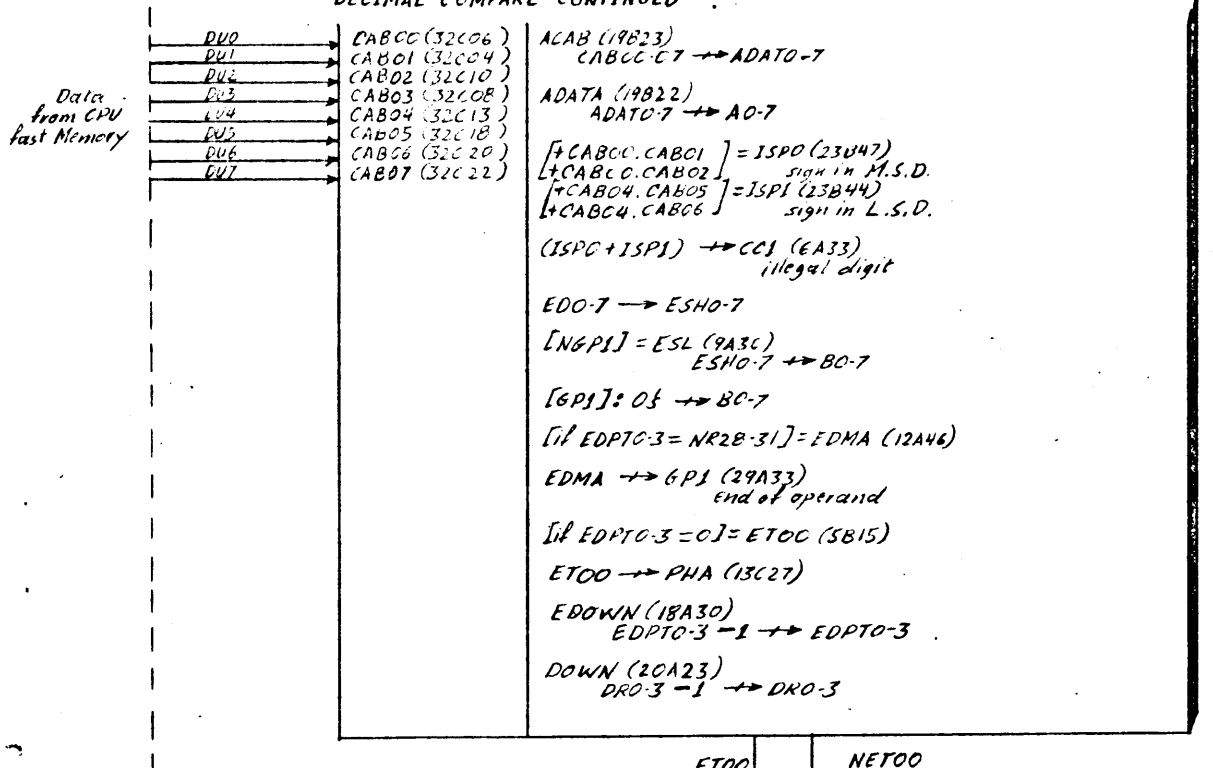 DECIMAL COMPARE CONTINUED
Data from CPU fast Memory
DU0 CAB00 (32C06)
DU1 CAB01 (32C04)
DU2 CAB02 (32C10)
DU3 CAB03 (32C08)
DU4 CAB04 (32C13)
DU5 CAB05 (32C18)
DU6 CAB06 (32C20)
DU7 CAB07 (32C22)
ACAB (19B23)
CAB00-07 ↛ ADAT0-7
ADATA (19B22)
ADAT0-7 ↛ A0-7
[+CAB00.CAB01 ] = ISP0 (23B47)
[+CAB00.CAB02] sign in M.S.D.
[+CAB04.CAB05 ] = ISP1 (23B44)
[+CAB04.CAB06 ] sign in L.S.D.
(ISP0+ISP1) ↛ CC1 (6A33)
illegal digit
ED0-7 → ESH0-7
[NGP1] = ESL (9A30)
ESH0-7 ↛ B0-7
[GP1]: 0s ↛ B0-7
[if EDPT0-3 = NR28-31] = EDMA (12A46)
EDMA ↛ GP1 (29A33)
end of operand
[if EDPT0-3 = 0] = ET00 (5B15)
ET00 ↛ PHA (13C27)
EDOWN (18A30)
EDPT0-3 -1 ↛ EDPT0-3
DOWN (20A23)
DR0-3 -1 ↛ DR0-3
ET00 NET00